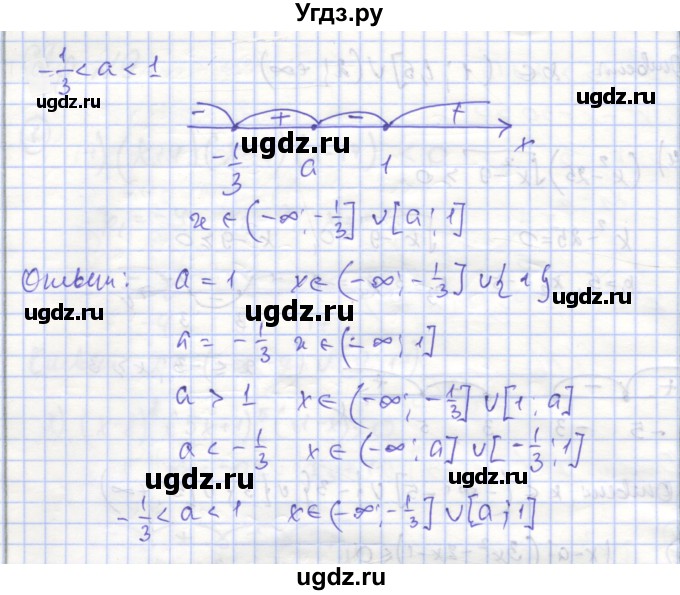 Угдз.ру
-1/3 < a < 1
ugdz.ru ugdz.ru
- + - +
ugdz.ru
-1/3 a 1 x
x ∈ (-∞; -1/3] ∪ [a; 1]
Ответ: a = 1 x ∈ (-∞; -1/3] ∪ {1}
ugdz.ru ugdz.ru ugdz.ru
a = -1/3 x ∈ (-∞; 1]
a > 1 x ∈ (-∞; -1/3] ∪ [1; a]
a < -1/3 x ∈ (-∞; a] ∪ [-1/3; 1]
ugdz.ru ugdz.ru
-1/3 < a < 1 x ∈ (-∞; -1/3] ∪ [a; 1]
ugdz.ru
ugdz.ru